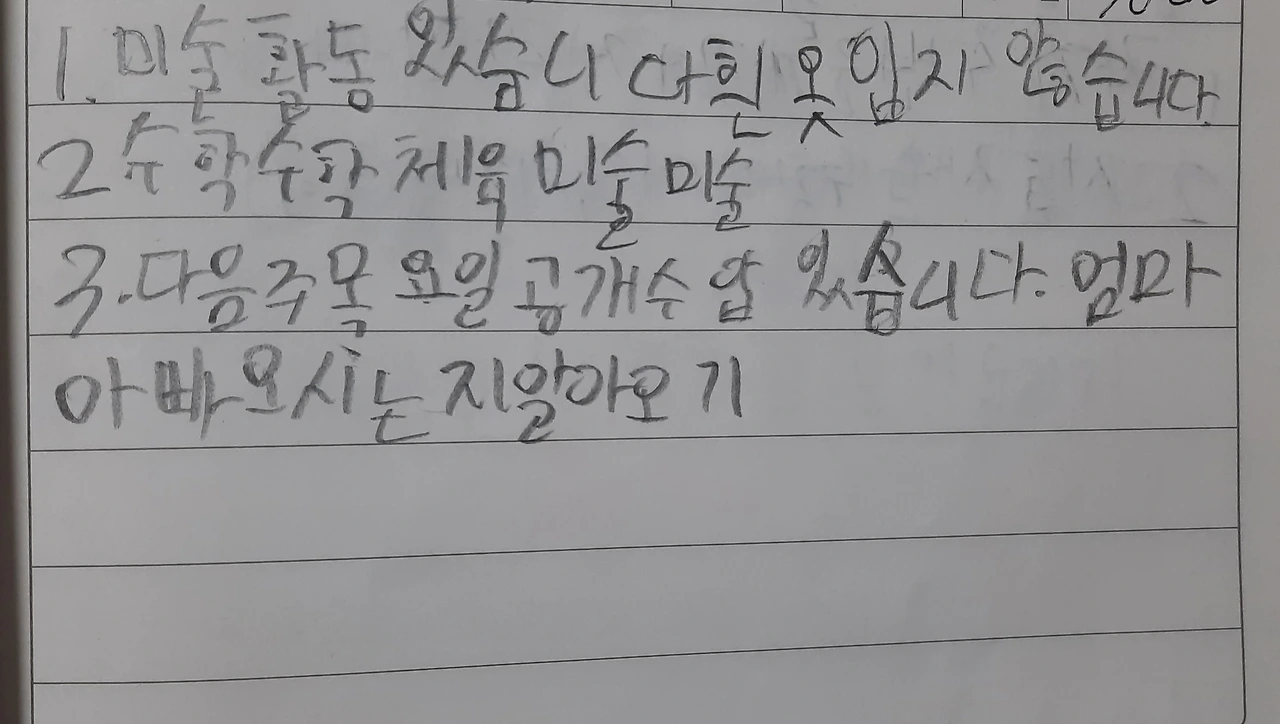 1. 미술 활동 있습니다 흰 옷 입지 않습니다.
2 수학 수학 체육 미술 미술
3. 다음주 목요일 공개수업 있습니다. 엄마
아빠 오시는지 알아오기